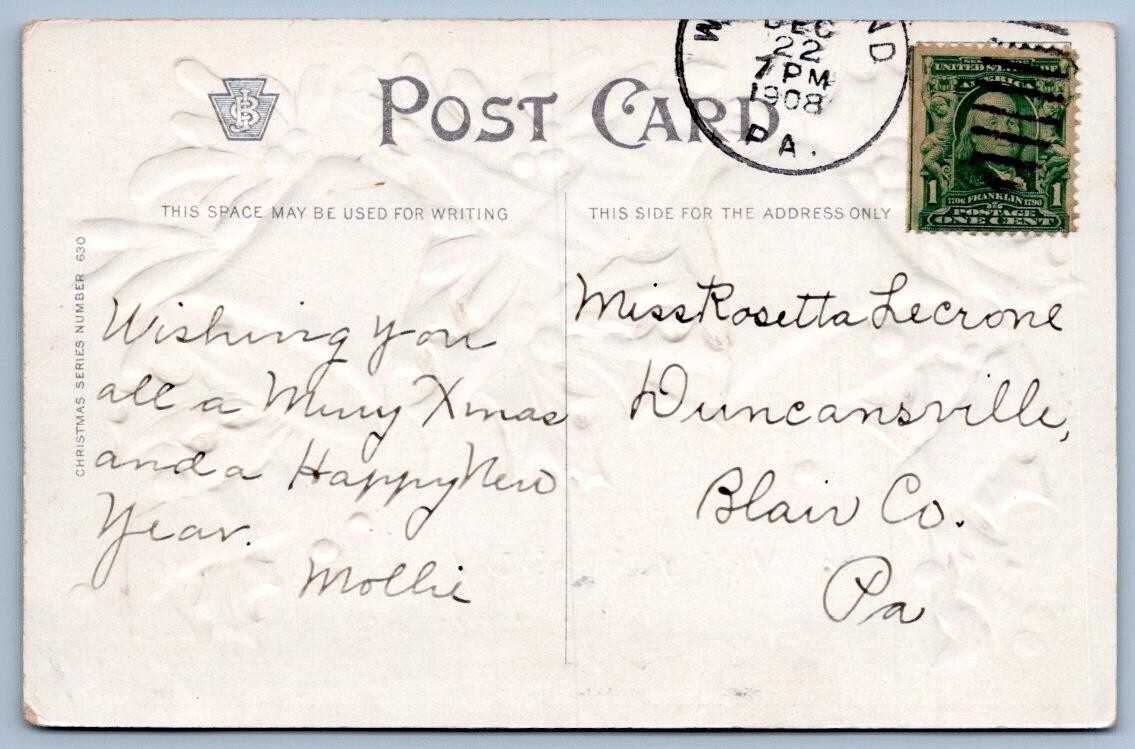 POST CARD
DEC
22
7 PM
1908
PA.
SERIES 1902
UNITED STATES OF
AMERICA
1 1706 FRANKLIN 1790 1
POSTAGE
ONE CENT
THIS SPACE MAY BE USED FOR WRITING
THIS SIDE FOR THE ADDRESS ONLY
CHRISTMAS SERIES NUMBER 630
Wishing you
all a Merry Xmas
and a Happy New
Year.
Mollie
Miss Rosetta Lecrone
Duncansville,
Blair Co.
Pa